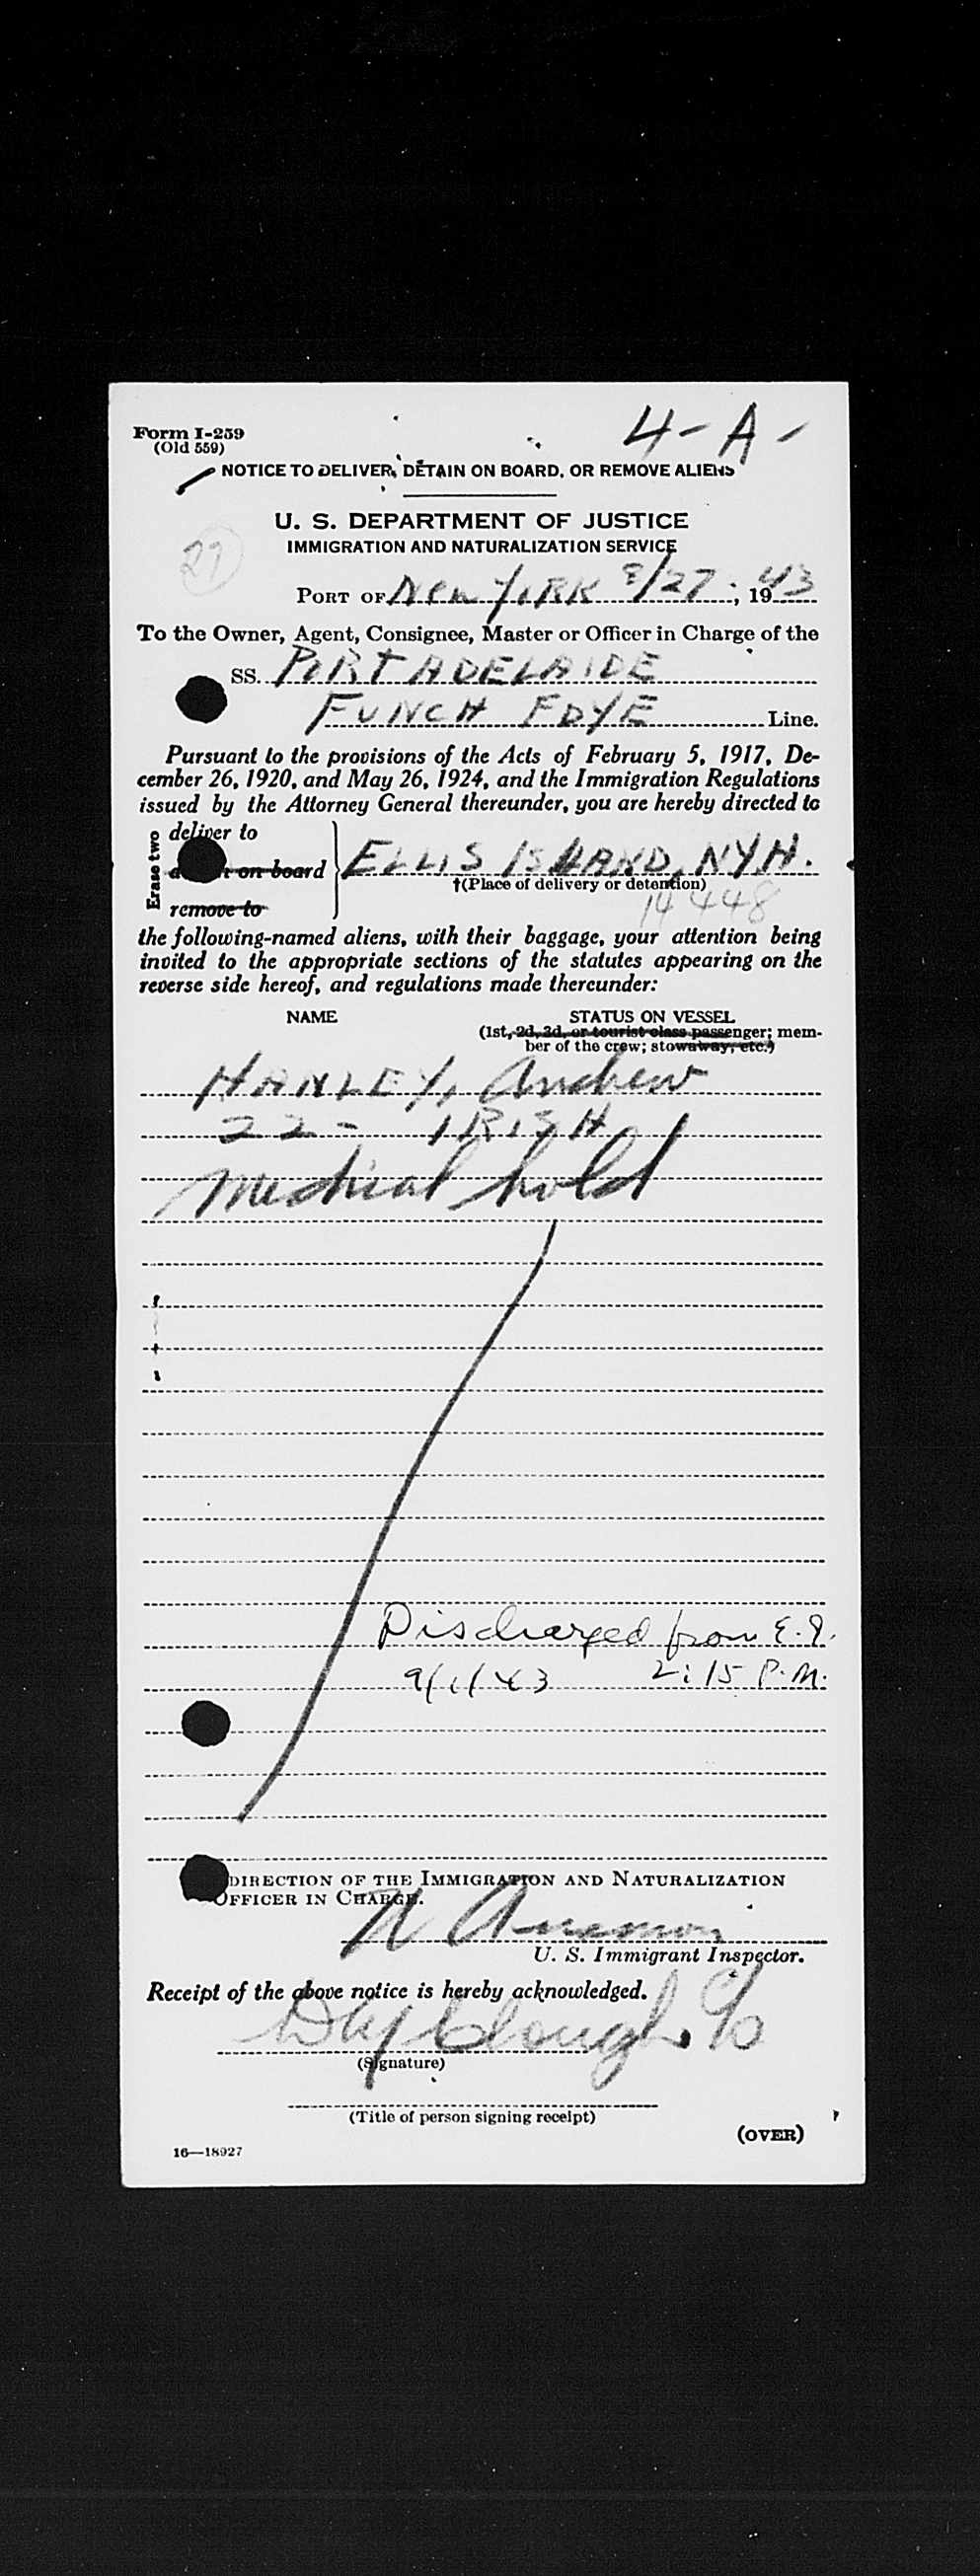 Form I-259
(Old 559)
4-A-
NOTICE TO DELIVER, DETAIN ON BOARD, OR REMOVE ALIENS
U. S. DEPARTMENT OF JUSTICE
IMMIGRATION AND NATURALIZATION SERVICE
27
PORT OF NEW YORK 8/27, 1943
To the Owner, Agent, Consignee, Master or Officer in Charge of the
SS. PORT ADELAIDE
FUNCH EDYE Line.
Pursuant to the provisions of the Acts of February 5, 1917, De-
cember 26, 1920, and May 26, 1924, and the Immigration Regulations
issued by the Attorney General thereunder, you are hereby directed to
Erase two
deliver to
on board
remove to
ELLIS ISLAND, NYH.
†(Place of delivery or detention)
14448
the following-named aliens, with their baggage, your attention being
invited to the appropriate sections of the statutes appearing on the
reverse side hereof, and regulations made thereunder:
NAME STATUS ON VESSEL
(1st, 2d, 3d, or tourist class passenger; mem-
ber of the crew; stowaway, etc.)
HANLEY, Andrew
22- IRISH
Medical hold
Discharged from E.I.
9/1/43 2:15 P.M.
DIRECTION OF THE IMMIGRATION AND NATURALIZATION
OFFICER IN CHARGE.
U. S. Immigrant Inspector.
Receipt of the above notice is hereby acknowledged.
Clough
(Signature)
(Title of person signing receipt)
(OVER)
16—18927